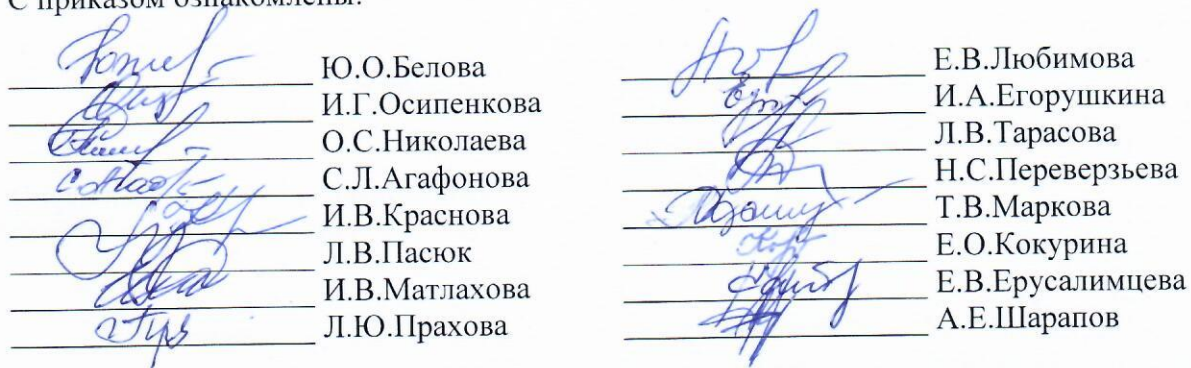 С приказом ознакомлены:
Ю.О.Белова
И.Г.Осипенкова
О.С.Николаева
С.Л.Агафонова
И.В.Краснова
Л.В.Пасюк
И.В.Матлахова
Л.Ю.Прахова
Е.В.Любимова
И.А.Егорушкина
Л.В.Тарасова
Н.С.Переверзьева
Т.В.Маркова
Е.О.Кокурина
Е.В.Ерусалимцева
А.Е.Шарапов